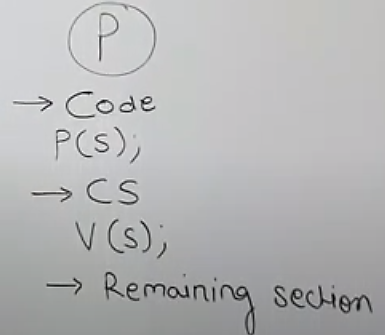 P
→ Code
P(S);
→ CS
V(S);
→ Remaining section